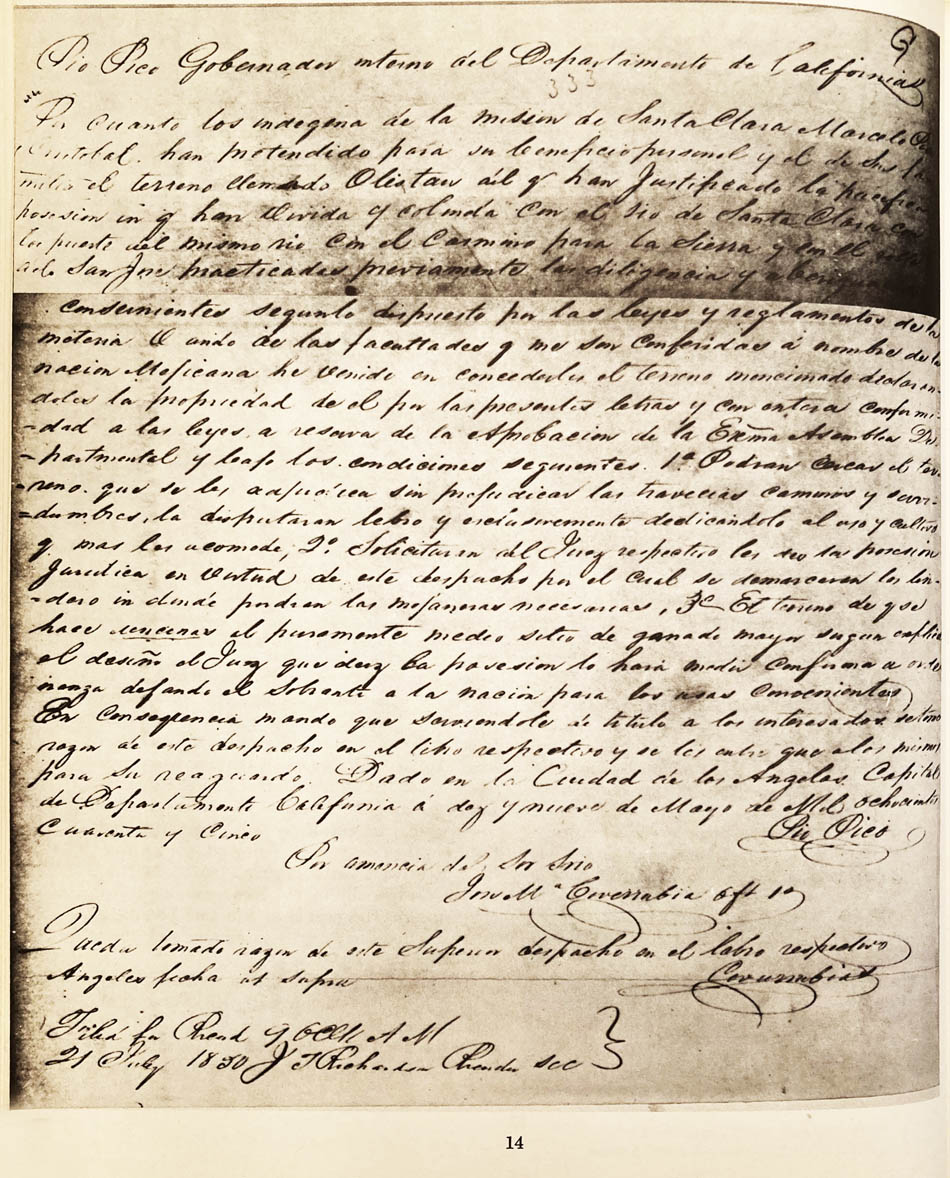 Pio Pico Gobernador interno del Departamento de California
333
Por cuanto los indegena de la mision de Santa Clara Marcelo Pio
Cristobal. han pretendido para su beneficio personal y el de sus fa
milia el terreno llamado Olistau del q han Justificado la pacifica
posesion in q han vivida q colinda con el rio de Santa Clara con
los puente del mismo rio con el Cammino para la Sierra y con el
San Jose practicadas previamente las diligencia y
consernientes segun lo dispuesto por las leyes y reglamentos de la
materia Usando de las facultades q me son conferidas á nombre de la
nacion Mejicana he venido en concederles el terreno mencionado declaran
doles la propriedad de el por las presentes letras y con entera conformi
-dad a las leyes, a reserva de la Aprobacion de la Exma Asamblea De
-partmental y bajo los condiciones seguientes. 1ª Podran cercar el ter
-reno. que se les adjudica sin prejudicar las travecias caminos y servi-
=dumbres, la disfrutaran lebre y esclusivemente dedicandolo al uso y cultivo
q mas les acomode, 2º Solicitaran del Juez respectivo les de la posesion
Juridica en virtud de este despacho por el cual se demarcaran los lin-
-dero in donde pondran las mojaneras necesarias, 3ª El terreno de q se
hace el puramente medio sitio de ganado mayor segun esplica
el deseño el Juez que dierz la posesion lo hará medir conforma a orde
nanza dejando el Sobrante a la nación para los usos convenientes
En consequencia mando que serviendole de titulo a los interesados se tome
razon de este despacho en el libro respectivo y se les entre que a los mismos
para su reaguardo. Dado en la Ciudad de los Angelos Capital
de Departamente California á diez y nueve de Mayo de Mil ochocientos
Cuarenta y Cinco
Pio Pico
Por amencia del Sor Srio
Jose Mª Coverrubia oft 1º
Queda tomado razon de este Superior despacho en el labro respectivo
Angeles fecha ut supra Covarrubias
Filed for Recd 9 OClk A M
21 July 1850 J T Richardson Recder
14